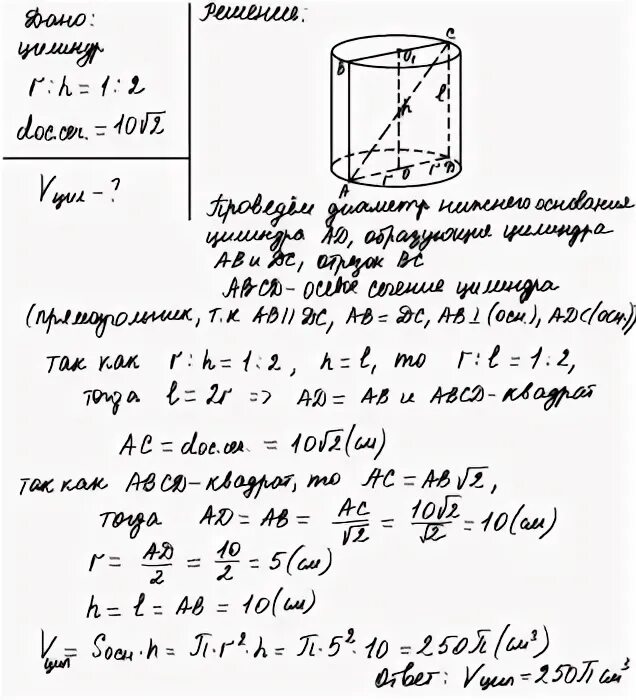 Дано:
цилиндр
r : h = 1 : 2
dос.сеч. = 10√2
Vцил - ?
Решение:
B O₁ C
h l
A r O r D
Проведём диаметр нижнего основания
цилиндра AD, образующие цилиндра
AB и DC, отрезок BC
ABCD - осевое сечение цилиндра
(прямоугольник, т.к AB || DC, AB = DC, AB ⊥ (осн.), AD ⊂ (осн.))
так как r : h = 1 : 2, h = l, то r : l = 1 : 2,
тогда l = 2r => AD = AB и ABCD - квадрат
AC = dос.сеч. = 10√2 (см)
так как ABCD - квадрат, то AC = AB√2,
тогда AD = AB = AC/√2 = 10√2/√2 = 10 (см)
r = AD/2 = 10/2 = 5 (см)
h = l = AB = 10 (см)
Vцил = Sосн · h = П · r² · h = П · 5² · 10 = 250П (см³)
Ответ: Vцил = 250П см³